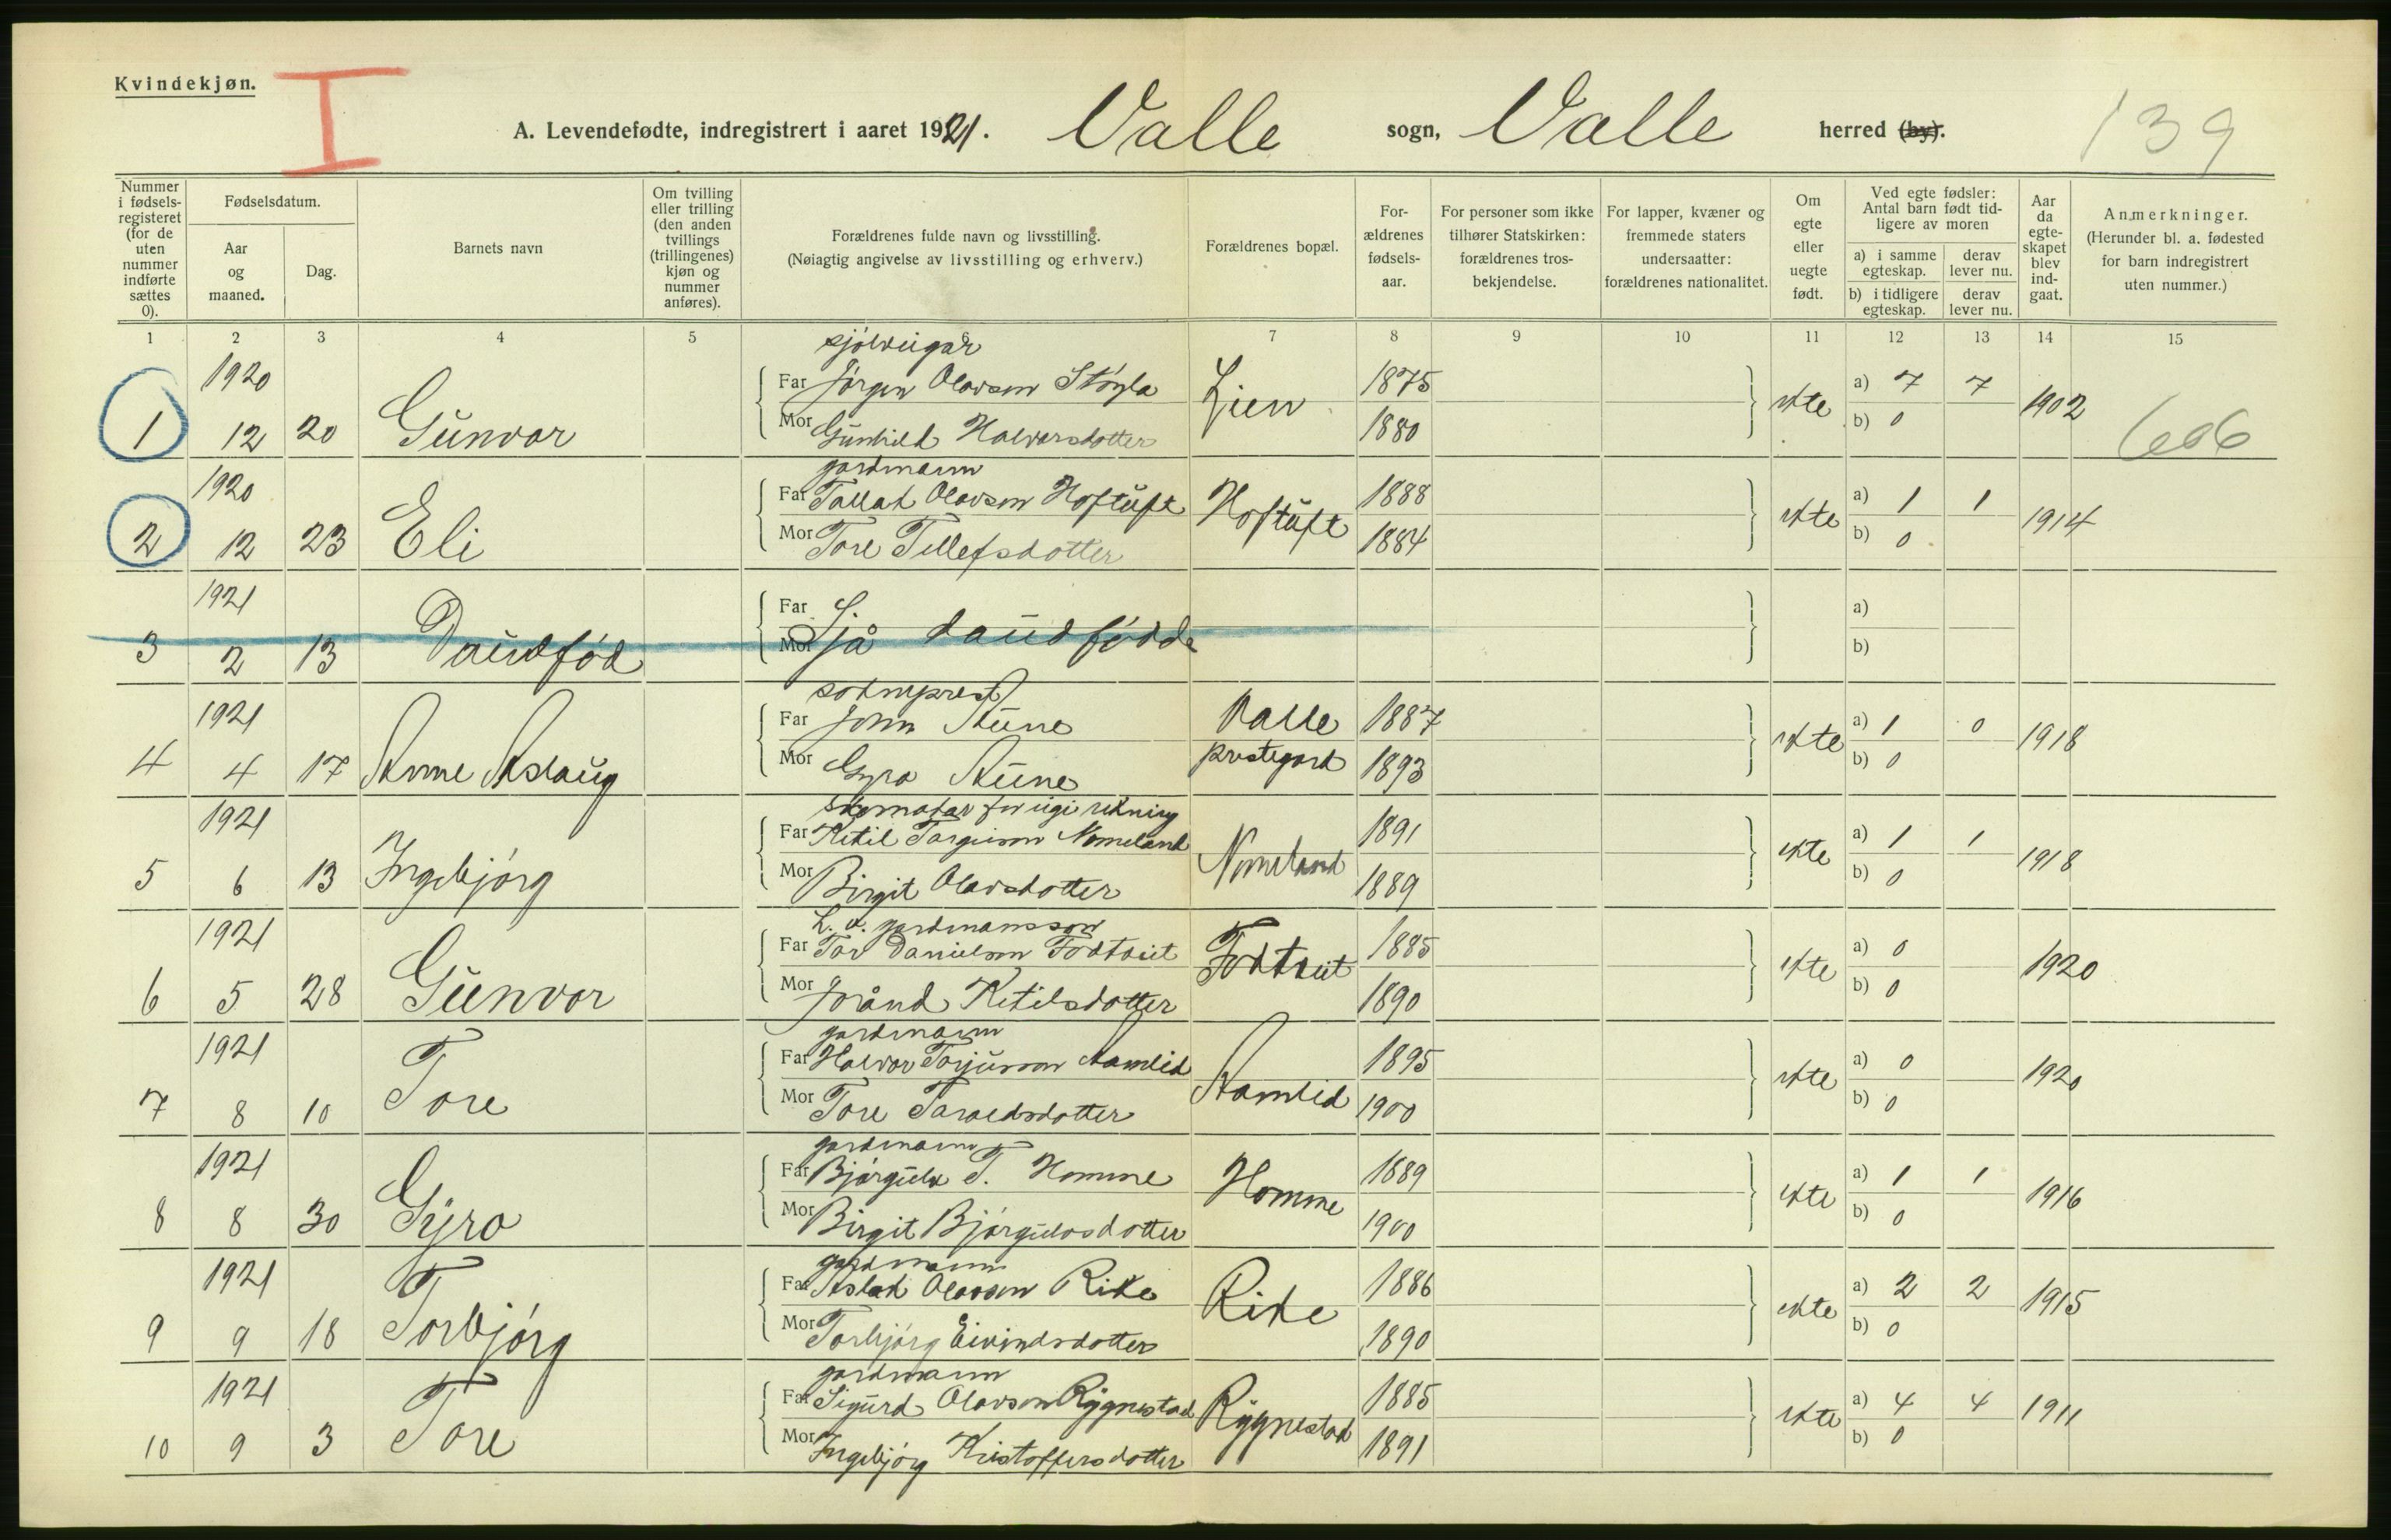 Kvindekjøn.
I
A. Levendefødte, indregistrert i aaret 1921. Valle sogn, Valle herred (by).
139
Nummer i fødselsregisteret (for de uten nummer indførte sættes 0).
Fødselsdatum.
Aar og maaned.
Dag.
Barnets navn
Om tvilling eller trilling (den anden tvillings (trillingenes) kjøn og nummer anføres).
Forældrenes fulde navn og livsstilling.
(Nøiagtig angivelse av livsstilling og erhverv.)
Forældrenes bopæl.
Forældrenes fødselsaar.
For personer som ikke tilhører Statskirken: forældrenes trosbekjendelse.
For lapper, kvæner og fremmede staters undersaatter: forældrenes nationalitet.
Om egte eller uegte født.
Ved egte fødsler: Antal barn født tidligere av moren
a) i samme egteskap.
derav lever nu.
b) i tidligere egteskap.
derav lever nu.
Aar da egteskapet blev indgaat.
Anmerkninger.
(Herunder bl. a. fødested for barn indregistrert uten nummer.)
1 2 3 4 5 6 7 8 9 10 11 12 13 14 15
sjølveigar
1920 Far Jørgen Olavson Støyla Lien 1875 ekte a) 7 7 1902
1 12 20 Gunvor Mor Gunhild Halvorsdotter 1880 b) 0
606
gardmann
1920 Far Tallak Olavson Hoftuft Hoftuft 1888 ekte a) 1 1 1914
2 12 23 Eli Mor Tore Tellefsdotter 1884 b) 0
1921 Far Sjå daudfødde a)
3 2 13 Daudfød Mor b)
sokneprest
1921 Far John Aune Valle prestegard 1887 ekte a) 1 0 1918
4 4 17 Anne Aslaug Mor Gyro Aune 1893 b) 0
skomakar for eigi rekning
1921 Far Ketil Torgeirson Nomeland Nomeland 1891 ekte a) 1 1 1918
5 6 13 Ingebjørg Mor Birgit Olavsdotter 1889 b) 0
L. a. gardmannsson
1921 Far Tor Danielson Tveit 1885 ekte a) 0 1920
6 5 28 Gunvor Mor Jorånd Ketilsdotter 1890 b) 0
gardmann
1921 Far Halvor Torjusson Aamlid Aamlid 1895 ekte a) 0 1920
7 8 10 Tore Mor Tore Taraldsdotter 1900 b) 0
gardmann
1921 Far Bjørgulv T. Homme Homme 1889 ekte a) 1 1 1916
8 8 30 Gyro Mor Birgit Bjørgulvsdotter 1900 b) 0
gardmann
1921 Far Aslak Olavson Rike Rike 1886 ekte a) 2 2 1915
9 9 18 Torbjørg Mor Torbjørg Eivindsdotter 1890 b) 0
gardmann
1921 Far Sigurd Olavson Rygnestad Rygnestad 1885 ekte a) 4 4 1911
10 9 3 Tore Mor Ingebjørg Kristoffersdotter 1891 b) 0